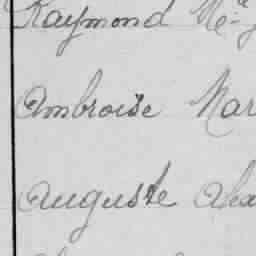 Raymond
Ambroise Mar
Auguste Alex